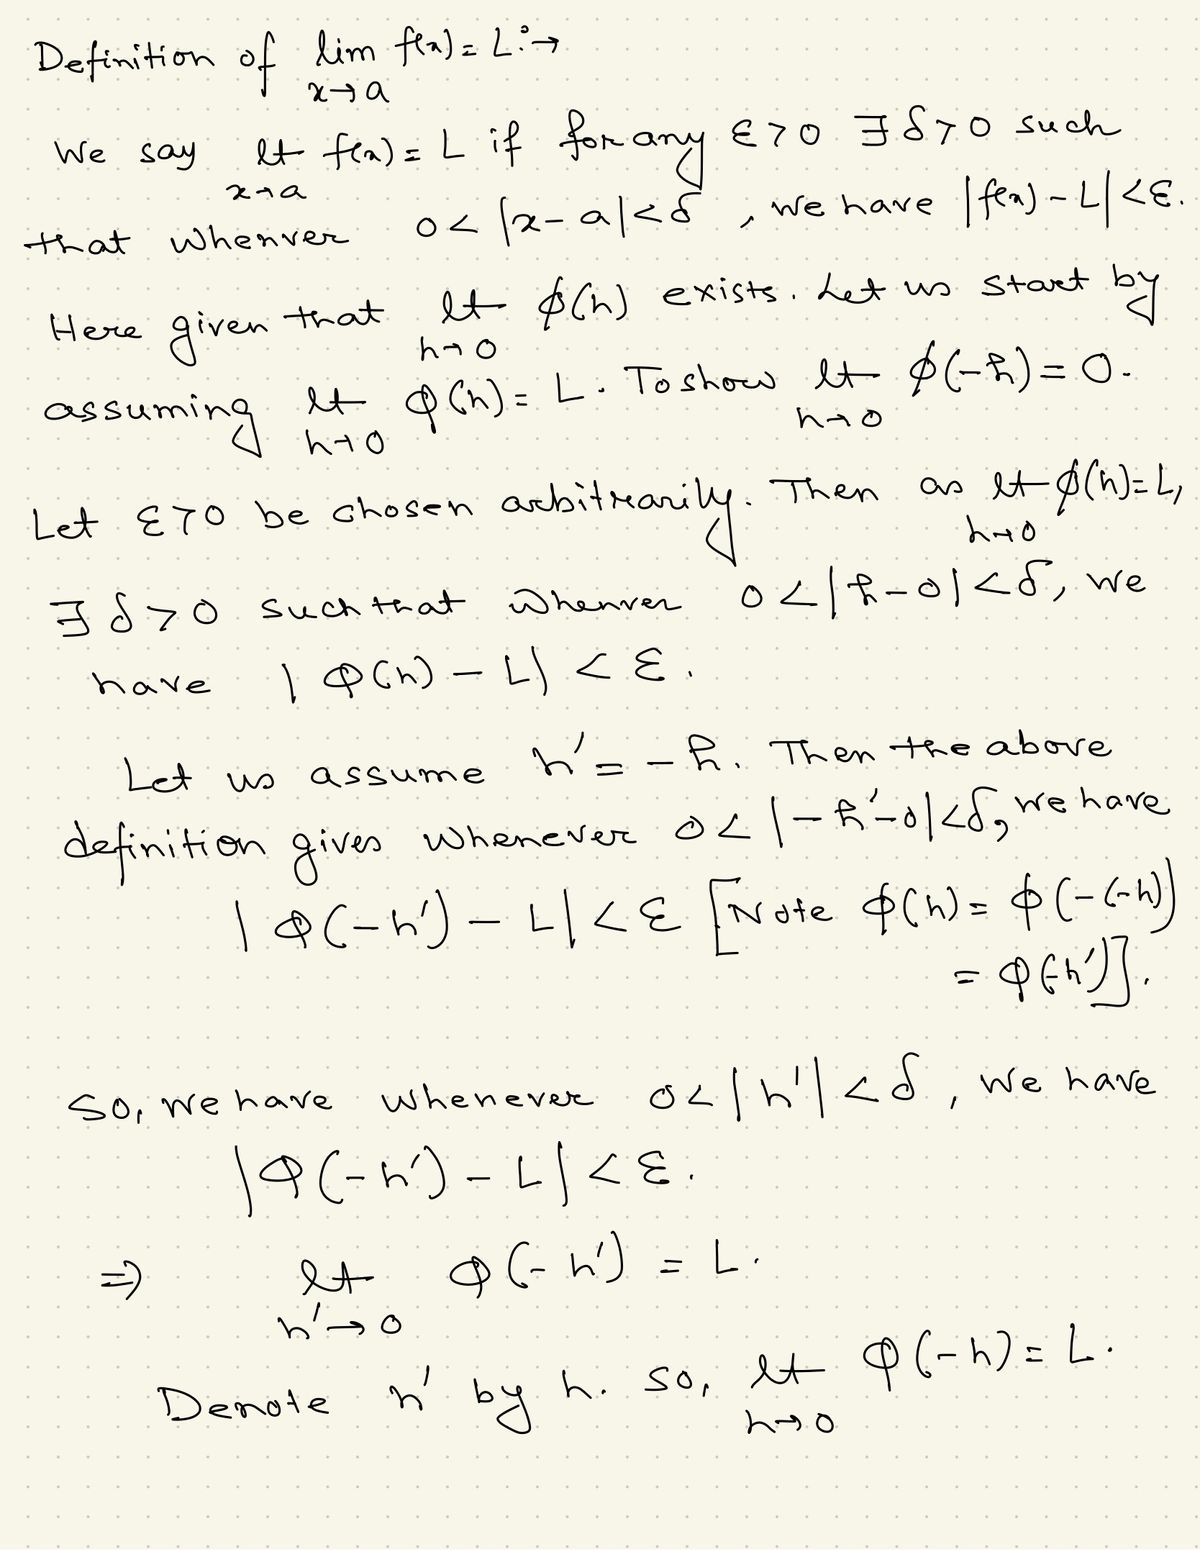 Definition of lim f(x) = L :→
x→a
We say lt f(x) = L if for any ε>0 ∃ δ>0 such
x→a
that whenver 0 < |x-a| < δ , we have |f(x) - L| < ε.
Here given that lt φ(h) exists. Let us start by
h→0
assuming lt φ(h) = L. To show lt φ(-h) = 0.
h→0 h→0
Let ε>0 be chosen arbitrarily. Then as lt φ(h)=L,
h→0
∃ δ>0 such that whenver 0<|h-0|<δ, we
have |φ(h) - L| < ε.
Let us assume h' = -h. Then the above
definition gives whenever 0<|-h'-0|<δ, we have
|φ(-h') - L| < ε [Note φ(h) = φ(-(-h))
= φ(-h')].
So, we have whenever 0<|h'|<δ, we have
|φ(-h') - L| < ε.
⇒ lt φ(-h') = L.
h'→0
Denote h' by h. So, lt φ(-h) = L.
h→0